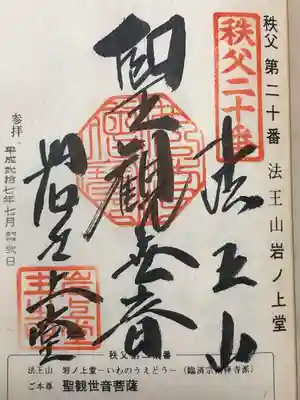 秩父 第二十番 法王山岩ノ上堂
秩父二十番
法王山
聖観世音
岩之上堂
参拝 平成弐拾七年七月
秩父第二十番
法王山 岩ノ上堂－いわのうえどう－（臨済宗南禅寺派）
ご本尊 聖観世音菩薩